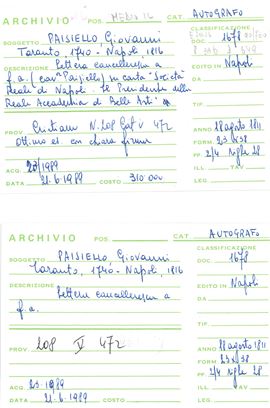 ARCHIVIO POS. CAT. AUTOGRAFO
SOGGETTO PAISIELLO Giovanni
Taranto, 1740 - Napoli 1816
CLASSIFICAZIONE
DOC. 1678
DESCRIZIONE Lettera cancelleresca a
f.a. (cav. Paisiello) su carta "Società
Reale di Napoli. Il Presidente della
Reale Accademia di Belle Arti".
EDITO IN Napoli
DA
TIF.
PROV. Cristiani N. 208 V 472
Ottimo es. con chiara firma
ANNO 18 agosto 1811
FORM. 23 x 38
PP. 2/4 righe 28
ACQ. 23/1989
ILL. AV.
DATA 21.6.1989 COSTO 310.000
LEG.
ARCHIVIO POS. CAT. AUTOGRAFO
CLASSIFICAZIONE
SOGGETTO PAISIELLO Giovanni
Taranto, 1740 - Napoli, 1816
DOC. 1678
DESCRIZIONE
Lettera cancelleresca a
f.a.
EDITO IN Napoli
DA
TIF.
PROV. 208 V 472
ANNO 18 agosto 1811
FORM. 23 x 38
PP. 2/4 righe 28
ACQ. 23 1989
ILL. AV.
DATA 21.6.1989 COSTO
LEG.